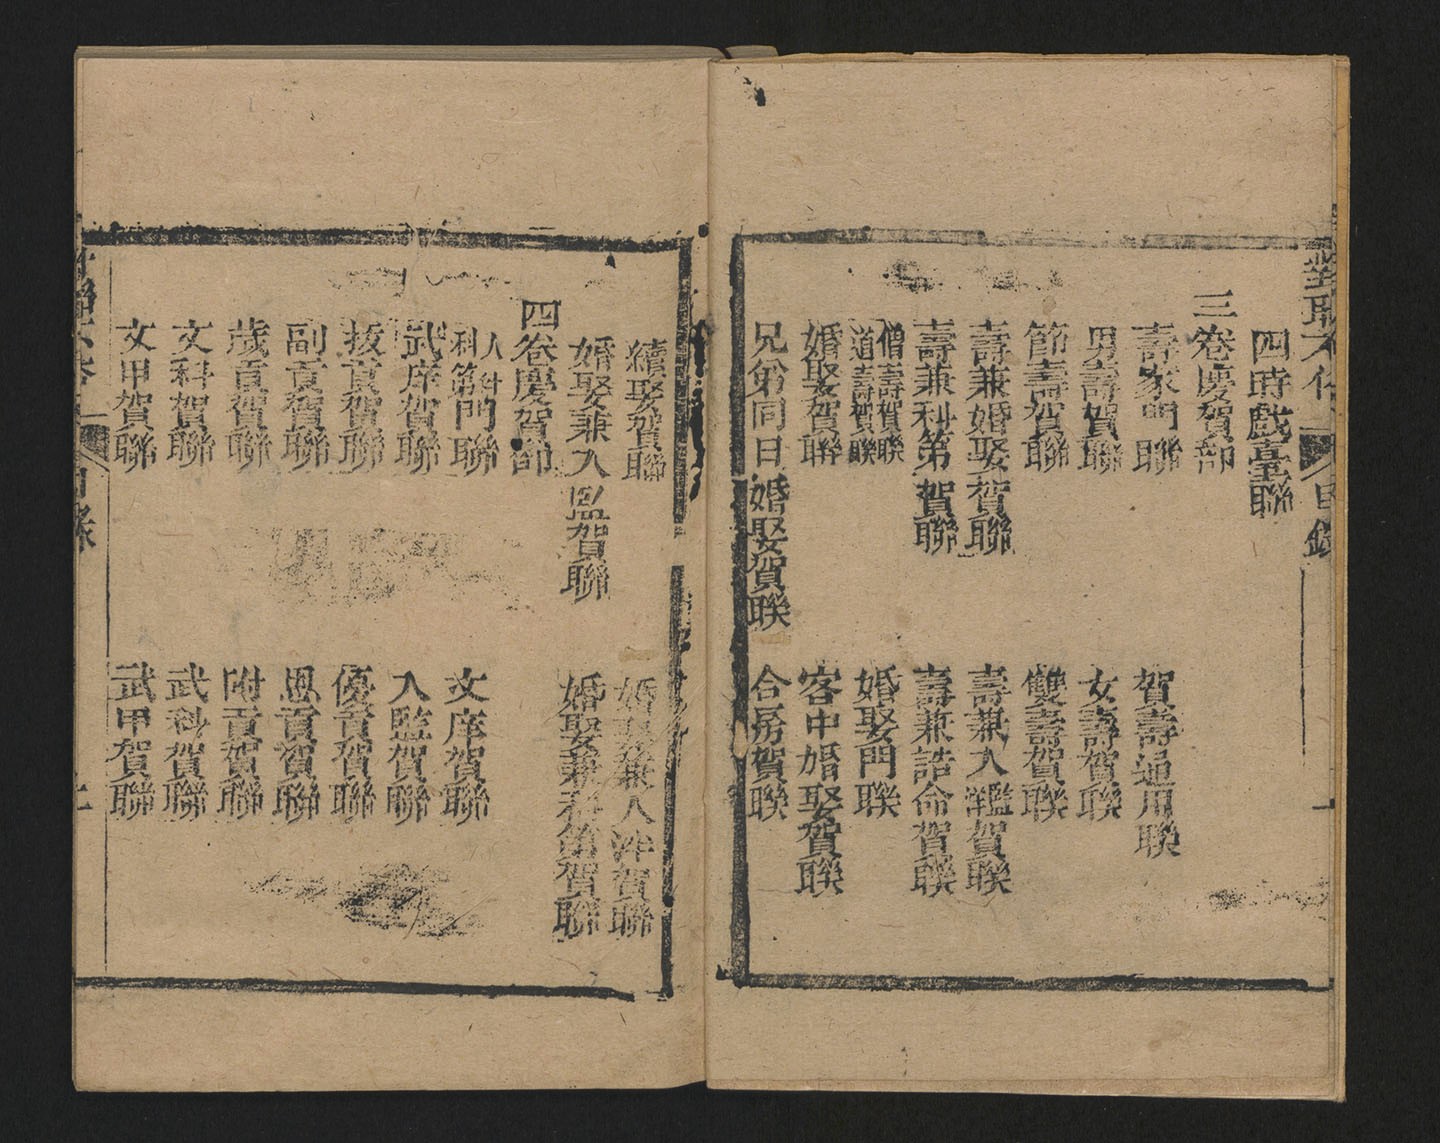 目錄
四時戲臺聯
三卷慶賀部
壽家門聯
賀壽通用联
男壽賀聯
女壽賀联
節壽賀联
雙壽賀联
壽兼婚娶賀聯
壽兼入鑑賀联
壽兼科第賀聯
壽兼誥命賀联
僧壽賀联
道壽賀联
婚娶門联
婚娶賀聨
客中婚娶賀联
兄弟同日婚娶賀联
合房賀联
續娶賀聯
婚娶兼入泮賀聯
婚娶兼入監賀聯
婚娶兼科第賀聯
四卷慶賀部
科第門聯
文庠賀聯
武庠賀聯
入監賀聯
拔貢賀聯
優貢賀聯
副貢賀聯
恩貢賀聯
歲貢賀聯
附貢賀聯
文科賀聯
武科賀聯
文甲賀聯
武甲賀聯
目錄